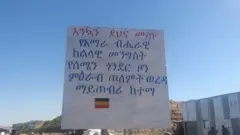 እንኳን ደህና መጡ
የአማራ ብሔራዊ
ክልላዊ መንግስት
የሰሜን ጎንደር ዞን
ምዕራብ ጠለምት ወረዳ
ማይጠብሪ ከተማ